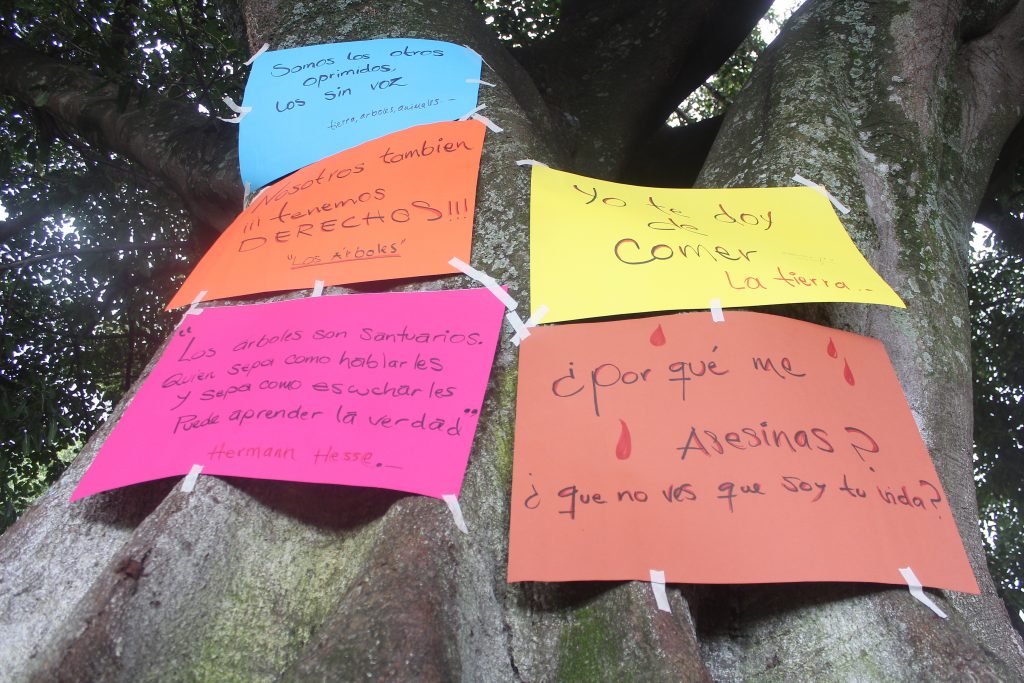 Somos los otros
oprimidos.
Los sin voz
tierra, arboles, animales...
Nosotros tambien
¡¡¡ tenemos
DERECHOS!!!
"Los Árboles"
"Los arboles son Santuarios.
Quien sepa como hablarles
y sepa como escucharles
Puede aprender la verdad"
Hermann Hesse.
Yo te doy
de
Comer
La tierra...
¿Por qué me
Asesinas?
¿que no ves que soy tu vida?